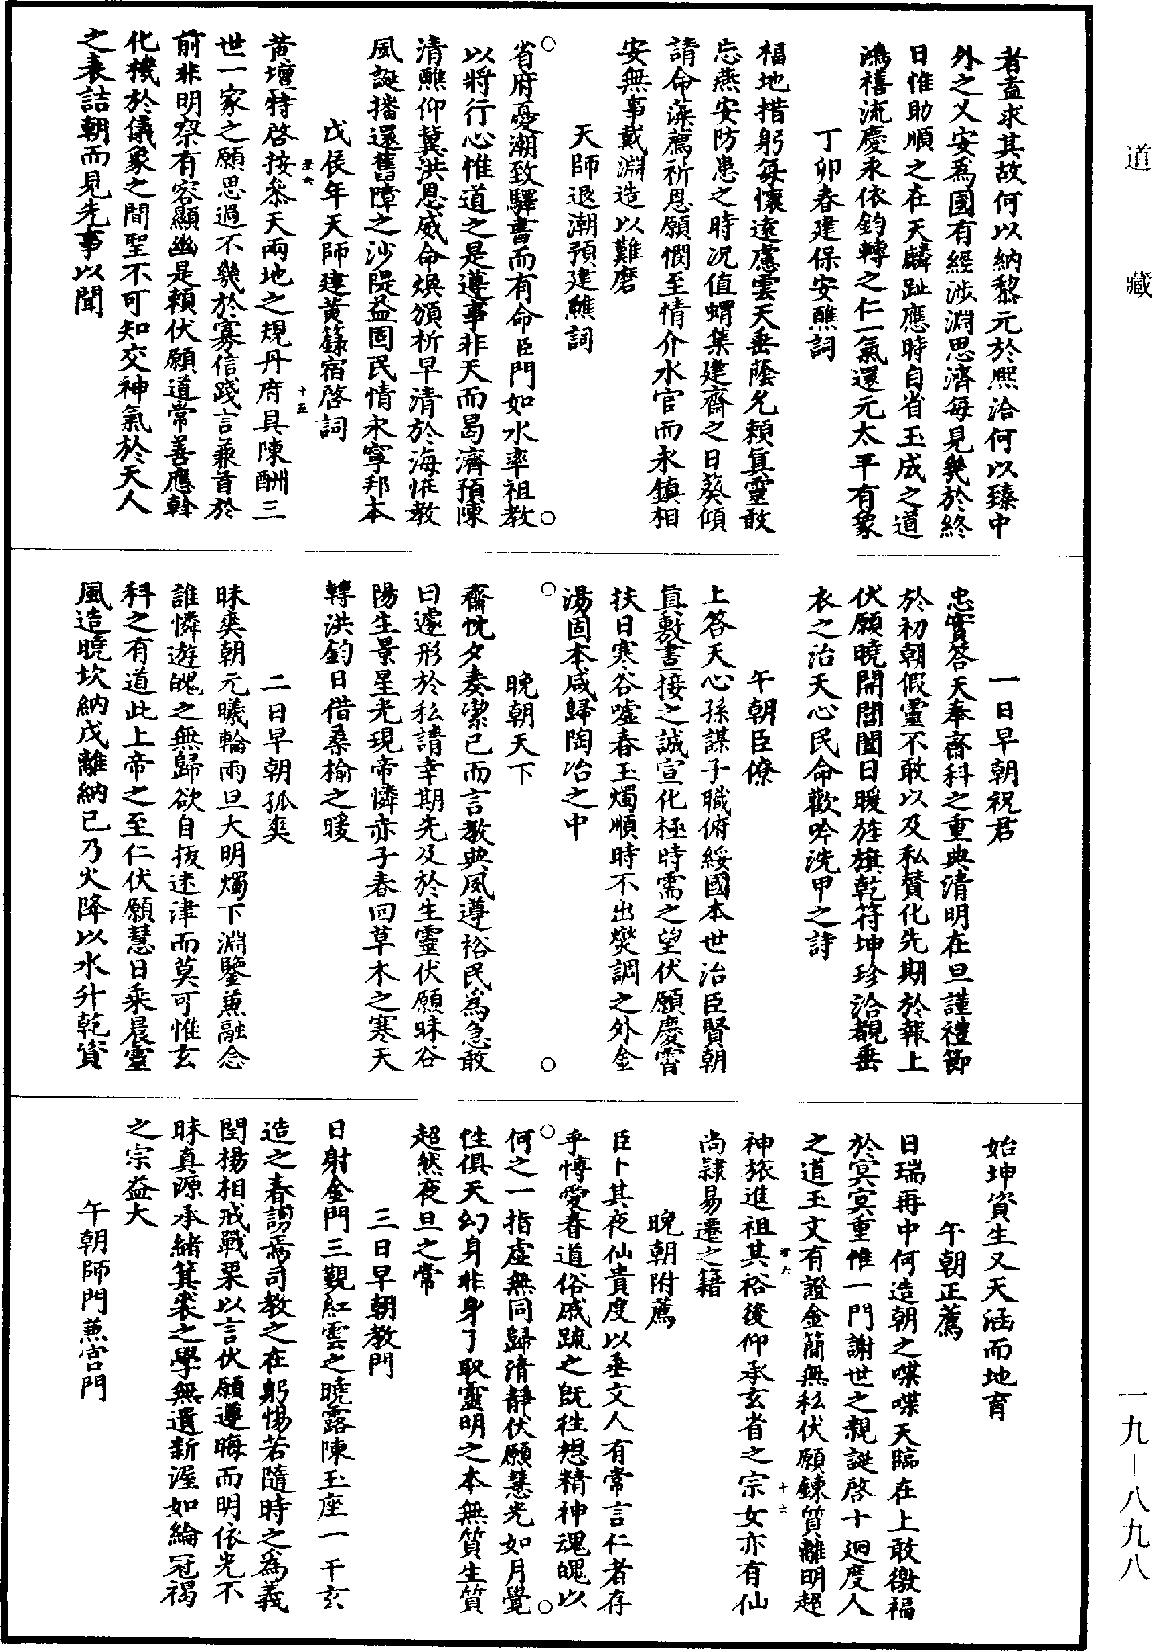 道藏
者蓋求其故何以納黎元於熙洽何以臻中
外之乂安爲國有經涉淵思濟每見幾於終
日惟助順之在天麟趾應時自省玉成之道
鴻禧流慶永依鈞轉之仁一氣還元太平有象
丁卯春建保安醮詞
福地措躬每懷遠慮雲天垂蔭允賴真靈敢
忘燕安防患之時況值蝟集建齋之日葵傾
請命藻薦祈恩願憫至情介水官而永鎮相
安無事戴淵造以難磨
天師退潮預建醮詞
省府憂潮致驛書而有命臣門如水率祖教
以將行心惟道之是遵事非天而曷濟預陳
清醮仰冀洪恩威命煥頒祈早清於海
風誕播還舊障之沙隄益固民情永寧邦本
戊辰年天師建黃籙宿啓詞
黃壇特啓按叅天兩地之規丹府具陳酬三
世一家之願思過不幾於寡信踐言兼旨於
前非明察有容顯幽是賴伏願道常善應斡
化機於儀象之間聖不可知交神氣於天人
之表詰朝而見先事以聞
一日早朝祝君
忠實答天奉齋科之重典清明在旦謹禮節
於初朝假靈不敢以及私贊化先期於報上
伏願曉開閶闔日暖旌旗乾符坤珍洽覩垂
衣之治天心民命歡吟洗甲之詩
午朝臣僚
上答天心孫謀子職俯綏國本世治臣賢朝
真敷晝接之誠宣化極時需之望伏願慶霄
扶日寒谷噓春玉燭順時不出燮調之外金
湯固本咸歸陶冶之中
晚朝天下
齋忱夕奏潔己而言教典風遵裕民爲急敢
曰遽形於私請幸期先及於生靈伏願昧谷
陽生景星光現帝憐赤子春回草木之寒天
轉洪鈞日借桑榆之暖
二日早朝孤爽
昧爽朝元曦輪兩旦大明燭下淵鑒兼融念
誰憐遊魄之無歸欲自拔迷津而莫可惟玄
科之有道此上帝之至仁伏願慧日乘晨靈
風造曉坎納戊離納己乃火降以水升乾資
始坤資生又天涵而地育
午朝正薦
日瑞再中何造朝之喋喋天臨在上敢徼福
於冥冥重惟一門謝世之親誕啓十迴度人
之道玉文有證金簡無私伏願鍊質離明超
神旅進祖其裕後仰承玄省之宗女亦有仙
尚隸易遷之籍
晚朝附薦
臣卜其夜仙貴度以垂文人有常言仁者存
乎博愛春道俗戚疏之既往想精神魂魄以
何之一指虛無同歸清靜伏願慧光如月覺
性俱天幻身非身了取靈明之本無質生質
超然夜旦之常
三日早朝教門
日射金門三觀紅雲之曉露陳玉座一干玄
造之春謭焉司教之在躬惕若隨時之爲義
閏楊相戒戰栗以言伏願遵晦而明依光不
昧真源承緒箕裘之學無遺新渥如綸冠褐
之宗益大
午朝師門兼宮門
十五
十六
一九—八九八